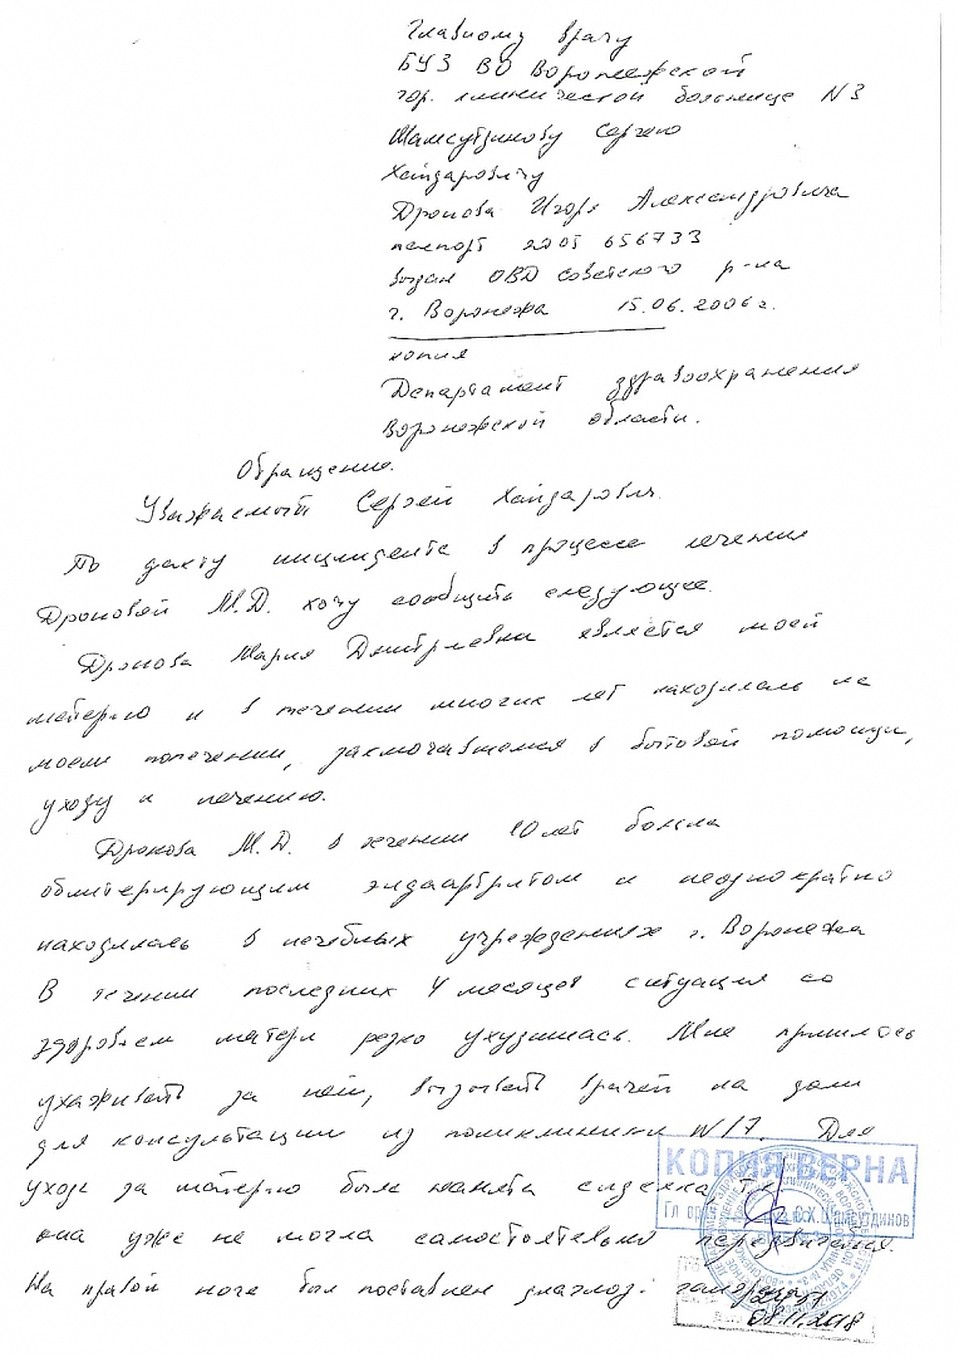 Главному врачу
БУЗ ВО Воронежской
гор. клинической больнице N3
Шамсутдинову Сергею
Хайдаровичу
Дронова Игоря Александровича
паспорт 2005 656733
выдан ОВД Советского р-на
г. Воронежа 15.06.2006 г.
копия
Департамент здравоохранения
Воронежской области.
Обращение.
Уважаемый Сергей Хайдарович.
По факту инциндента в процессе лечения
Дроновой М.Д. хочу сообщить следующее.
Дронова Мария Дмитриевна является моей
матерью и в течении многих лет находилась на
моем попечении, заключавшемся в бытовой помощи,
уходу и лечению.
Дронова М.Д. в течении 10 лет болела
облитерирующим эндаартритом и неоднократно
находилась в лечебных учреждениях г. Воронежа
В течении последних 4 месяцев ситуация со
здоровьем матери резко ухудшилась. Мне пришлось
ухаживать за ней, вызывать врачей на дом
для консультации из поликлиники N17. Для
ухода за матерью была нанята сиделка, т.к.
она уже не могла самостоятельно передвигаться.
На правой ноге был поставлен диагноз: гангрена
КОПИЯ ВЕРНА
Гл С.Х.Шамсутдинов
08.11.2018